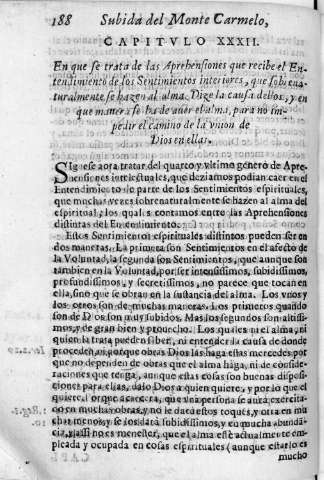 188 Subida del Monte Carmelo,
CAPITVLO XXXII.
En que se trata de las Aprehensiones que recibe el En-
tendimiento de los Sentimientos interiores, que sobrena-
turalmente se hazen al alma. Dize la causa dellos, y en
que manera se ha de auer el alma, para no im-
pedir el camino de la vnion de
Dios en ellas.
SIguese aora tratar del quarto, y vltimo genero de Apre-
hensiones intelectuales, que deziamos podian caer en el
Entendimiento de parte de los Sentimientos espirituales,
que muchas vezes sobrenaturalmente se hazen al alma del
espiritual, los quales contamos entre las Aprehensiones
distintas del Entendimiento.
Estos Sentimientos espirituales distintos pueden ser en
dos maneras. La primera son Sentimientos en el afecto de
la Voluntad, la segunda son Sentimientos, que aunque son
tambien en la Voluntad, por ser intensissimos, subidissimos,
profundissimos, y secretissimos, no parece que tocan en
ella, sino que se obran en la sustancia del alma. Los vnos y
los otros son de muchas maneras. Los primeros quando
son de Dios son muy subidos. Mas los segundos son altissi-
mos, y de gran bien y prouecho. Los quales ni el alma, ni
quien la trata pueden saber, ni entender la causa de donde
proceden, ni porque obras Dios las haga estas mercedes por
que no dependen de obras que el alma haga, ni de conside-
raciones que tenga, aunque estas cosas son buenas disposi-
ciones para ellas, dalo Dios a quien quiere, y por lo que el
quiere, porque acaecera, que vna persona se aura exercita-
do en muchas obras, y no le dara estos toques, y otra en mu
chas menos, y se los dara subidissimos, y en mucha abundā-
cia, y assi no es menester, que el alma esté actualmente em-
pleada y ocupada en cosas espirituales (aunque estarlo es
mucho